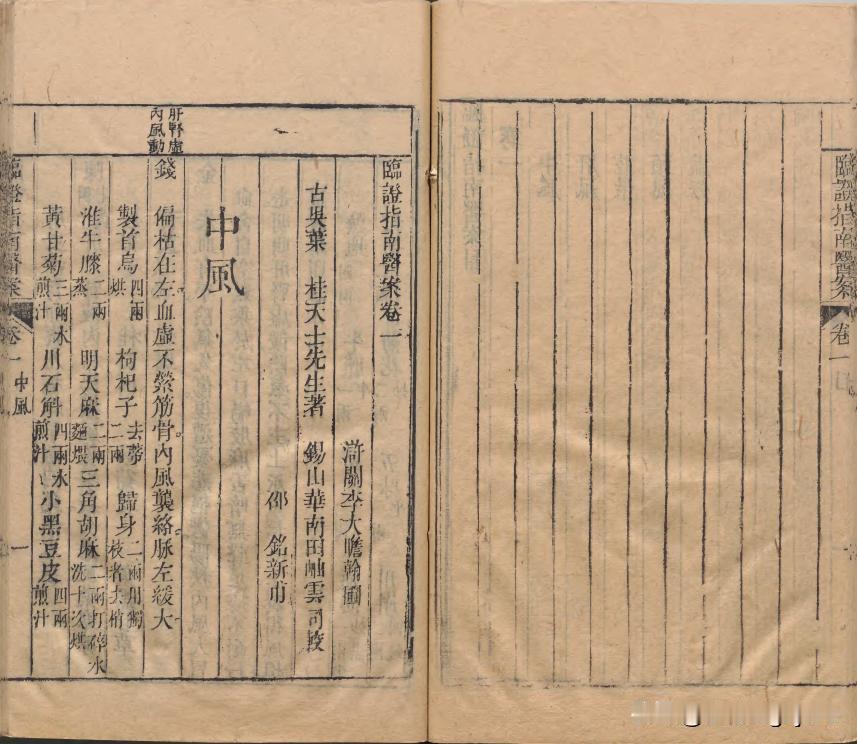 臨證指南醫案 卷一
臨證指南醫案卷一
滸關李大瞻翰圃
古吳葉 桂天士先生著 錫山華南田岫雲司校
邵 銘新甫
中風
肝腎虛
內風動
錢 偏枯在左血虛不縈筋骨內風襲絡脉左緩大
製首烏四兩烘 枸杞子去蒂二兩 歸身二兩用獨枝者去梢
淮牛膝二兩蒸 明天麻二兩麵煨 三角胡麻二兩打碎水洗十次烘
黃甘菊三兩水煎汁 川石斛四兩水煎汁 小黑豆皮四兩煎汁
臨證指南醫案 卷一 中風 一